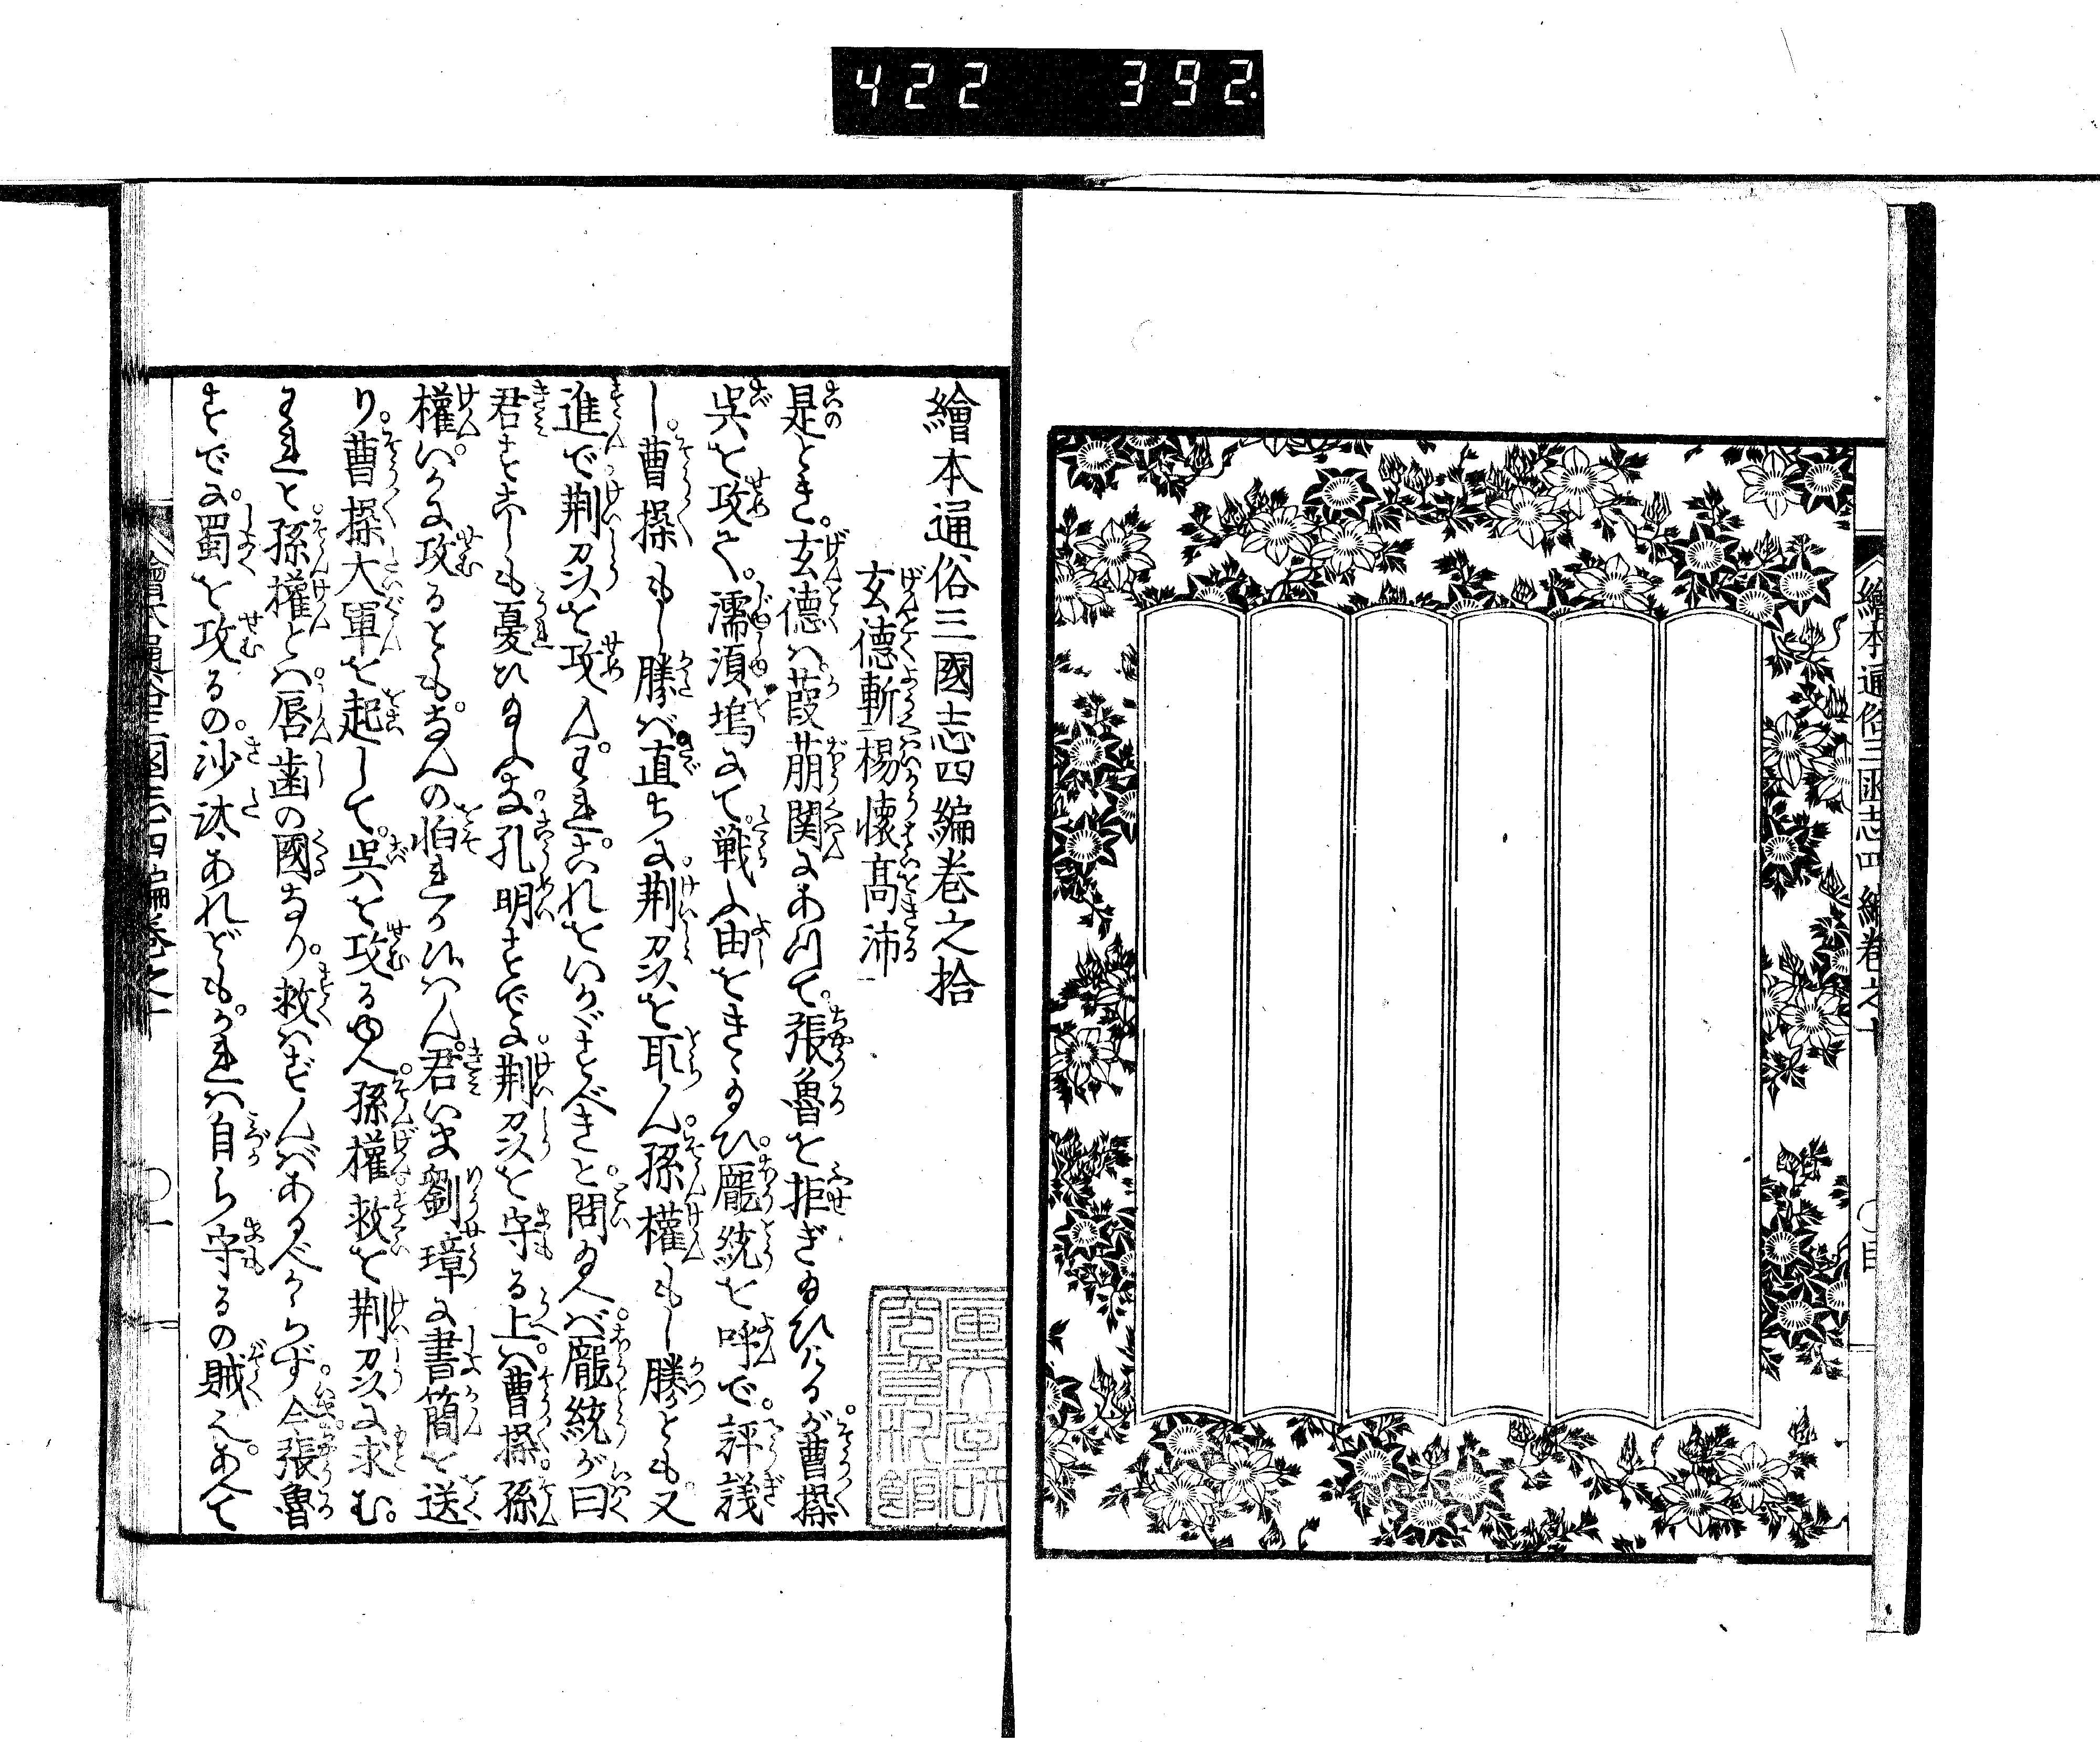 422 392.
繪本通俗三國志四編巻之十
〇目
繪本通俗三國志四編巻之拾
玄德斬楊懷髙沛
是とき。玄德ハ葭萠関にありて。張魯を拒ぎゐひたるが曹操
呉を攻て。濡須塢にて。戦ふ由をきゝゐひ。龐統を呼で。評議
し。曹操もし勝バ直ちに荆州を取ん。孫權もし勝とも。又
進で荆州を攻ん。われこれをいかゞすべきと問ゐへバ。龐統が曰
君すこしも憂ひゐふな。孔明すでに荆州を守る上ハ。曹操孫
權。いかに攻るとも。なんの怕れか候ハん。君いま劉璋に書簡を送
り。曹操大軍を起して。呉を攻るゆへ。孫權救を荆州に求む。
われと孫權とハ唇歯の國なり。救ハずんバあるべからず。今張魯
すでに。蜀を攻るの。沙汰あれども。かれハ自ら守るの賊にて。あへて
繪本通俗三國志四編巻之十
〇一